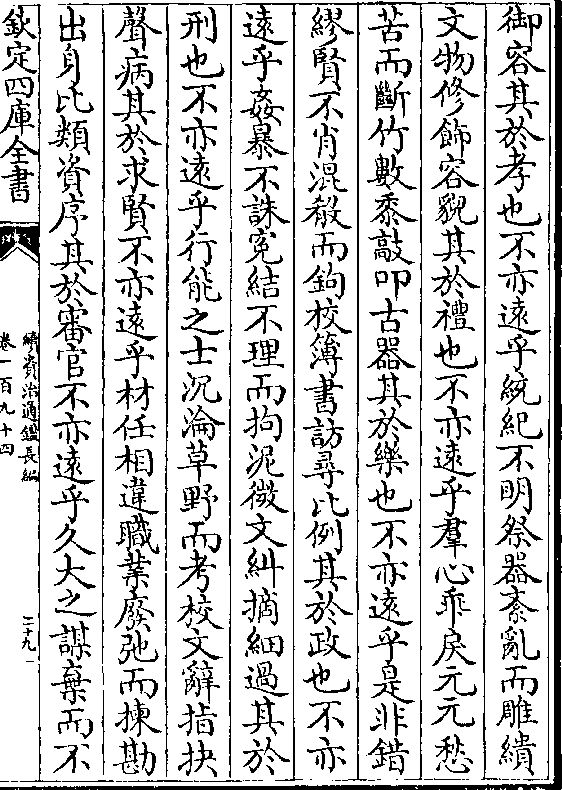 御容其於孝也不亦遠乎統紀不明祭器紊亂而雕繢
文物修飾容貌其於禮也不亦遠乎羣心乖戾元元愁
苦而斷竹數黍敲叩古器其於樂也不亦遠乎是非錯
繆賢不肖混殽而鉤校簿書訪尋比例其於政也不亦
遠乎姦暴不誅寃結不理而拘泥微文糾摘細過其於
刑也不亦遠乎行能之士沉淪草野而考校文辭指抉
聲病其於求賢不亦遠乎材任相違職業廢弛而揀勘
出身比類資序其於審官不亦遠乎久大之謀棄而不
欽定四庫全書
續資治通鑑長編
卷一百九十四
二十九